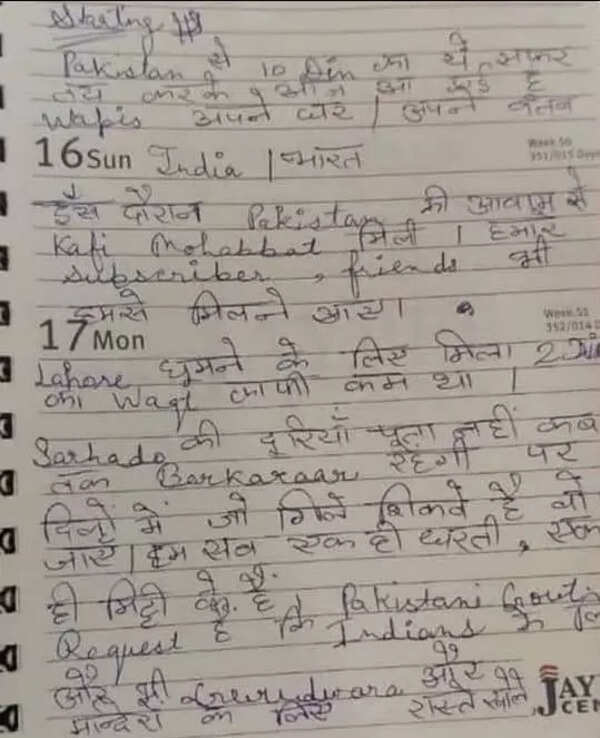 Starting
Pakistan से 10 Din का ये सफर
तय करके आज आ गई है
Wapis अपने घर | अपने वतन
16 Sun India | भारत
Week 50
इस दौरान Pakistan की आवाम से
Kafi Mohabbat मिली | हमारे
subscriber, friends भी
हमसे मिलने आए |
17 Mon
Week 51
Lahore घूमने के लिए मिला 2
का Waqt काफी कम था |
Sarhado की दूरियाँ पता नहीं कब
तक Barkaraar रहेगी पर
दिलों में जो गिले शिकवे है वो
जाए | हम सब एक ही धरती, एक
ही मिट्टी के है. Pakistani
Request है कि Indians के
और भी Gurudwara और
मन्दिरो के लिए रास्ते खोले
JAY
CEN